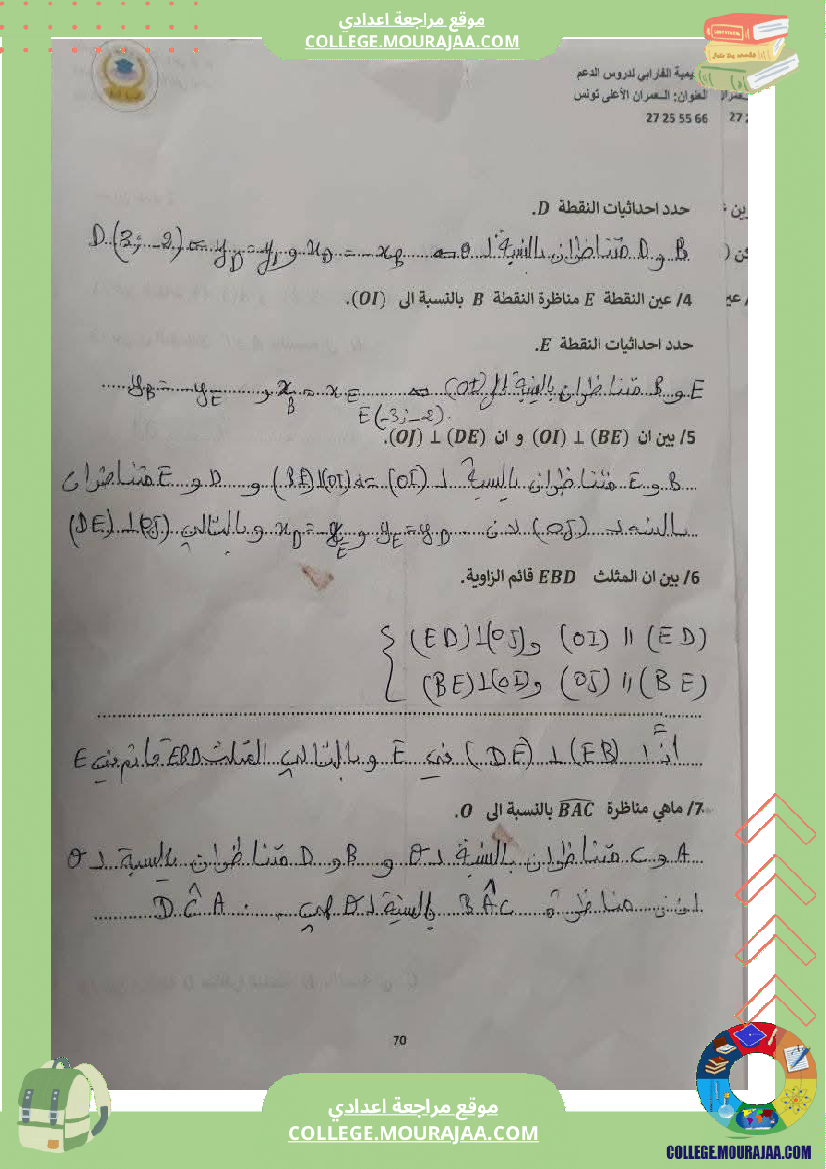 موقع مراجعة اعدادي
COLLEGE.MOURAJAA.COM
يمية الفارابي لدروس الدعم
العنوان: العمران الأعلى تونس
27 25 55 66
27
حدد احداثيات النقطة D.
B و D متناظران بالنسبة لـ O
4/ عين النقطة E مناظرة النقطة B بالنسبة الى (OI).
حدد احداثيات النقطة E.
E و B متناظران بالنسبة الى (OI) ⇔ x_B = x_E و y_B = - y_E
E(-3; -2).
5/ بين ان (BE) ⊥ (OI) و ان (DE) ⊥ (OJ).
B و E متناظران بالنسبة لـ (OI) ⇒ (BE)⊥(OI) و D و E متناظران
(OJ) لان y_E = y_D و وبالتالي (DE)⊥(OJ)
6/ بين ان المثلث EBD قائم الزاوية.
(ED) // (OI) و (ED)⊥(OJ)
(BE) // (OJ) و (BE)⊥(OI)
اذا (EB) ⊥ (DE) في E وبالتالي المثلث EBD قائم في E
7/ ماهي مناظرة BAC بالنسبة الى O.
A و C متناظران بالنسبة لـ O و B و D متناظران بالنسبة لـ O
مناظرة BÂC بالنسبة لـ O هي DĈA
70
موقع مراجعة اعدادي
COLLEGE.MOURAJAA.COM
COLLEGE.MOURAJAA.COM